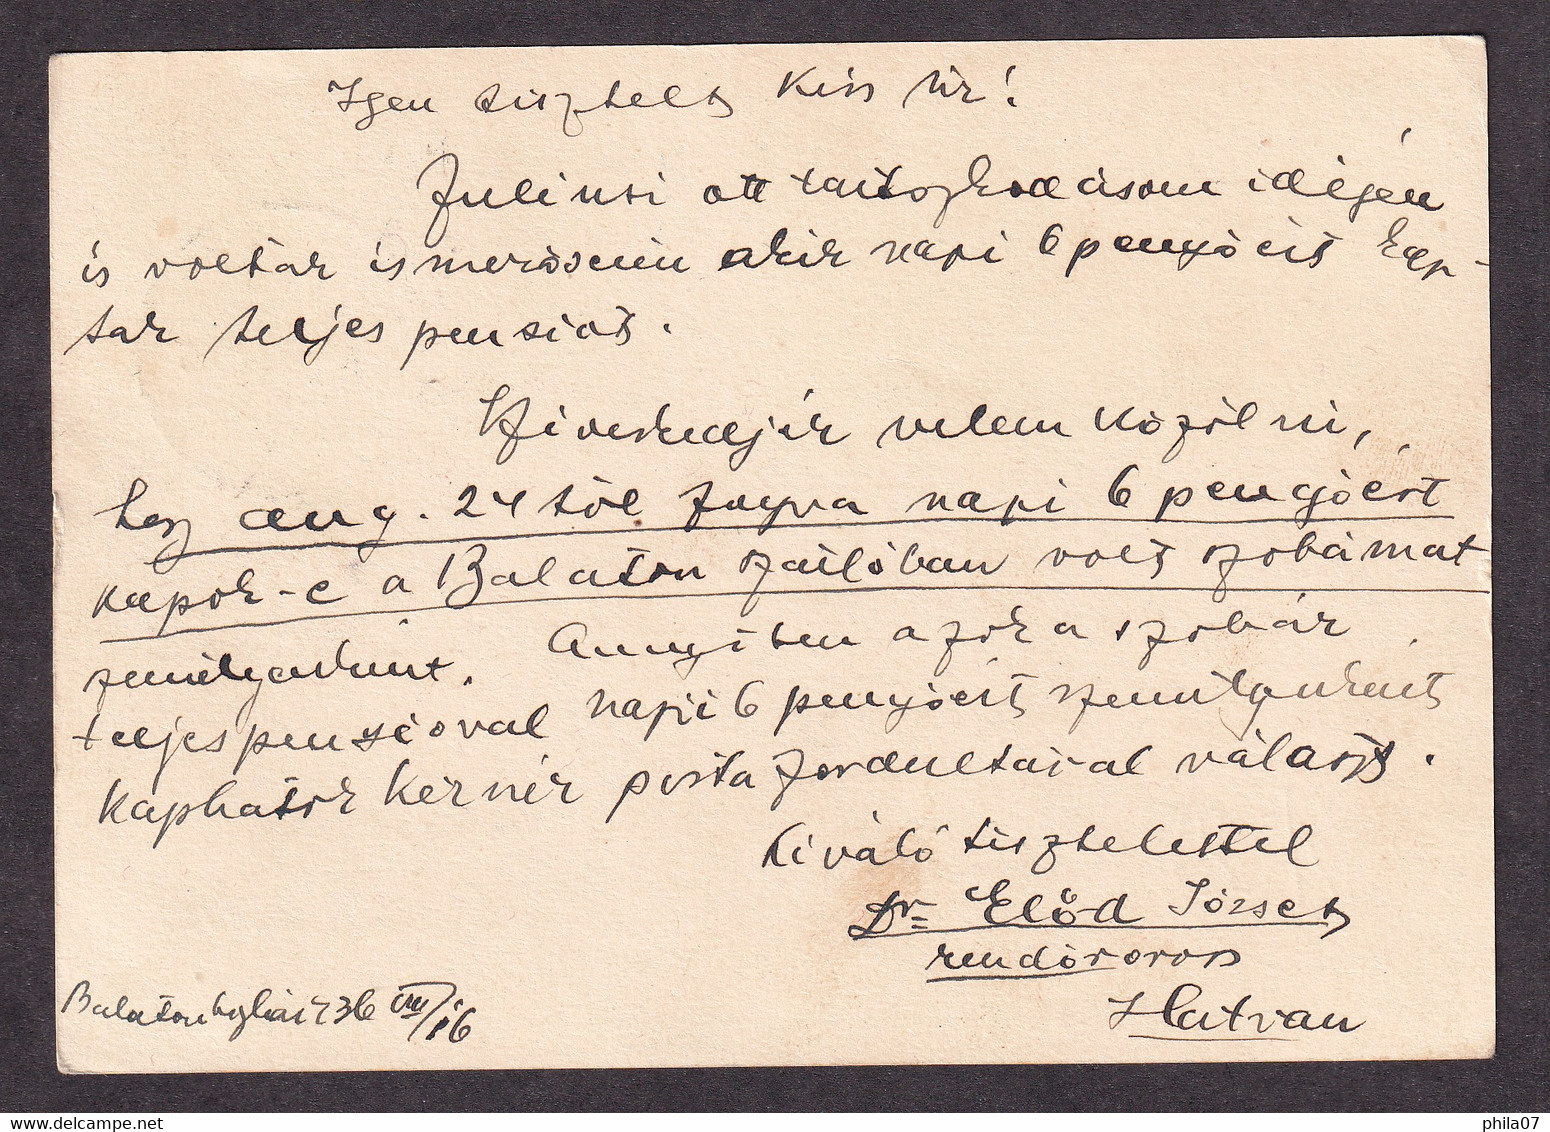 Igen tisztelt Kiss Úr!
Juliusi ott tartózkodásom idején
is voltak ismerőseim akik napi 6 pengőért kap-
tak teljes pensiót.
Sziveskedjék velem közölni,
hogy aug. 24 től fogva napi 6 pengőért
kapok-e a Balaton szállóban volt szobámat
személyenként. Amennyiben azok a szobák
teljes penzióval napi 6 pengőért személyenként
kaphatók kérnék posta fordultával választ.
Kiváló tisztelettel
Dr Előd József
rendőrorvos
Hatvan
936 VIII/16
phila07